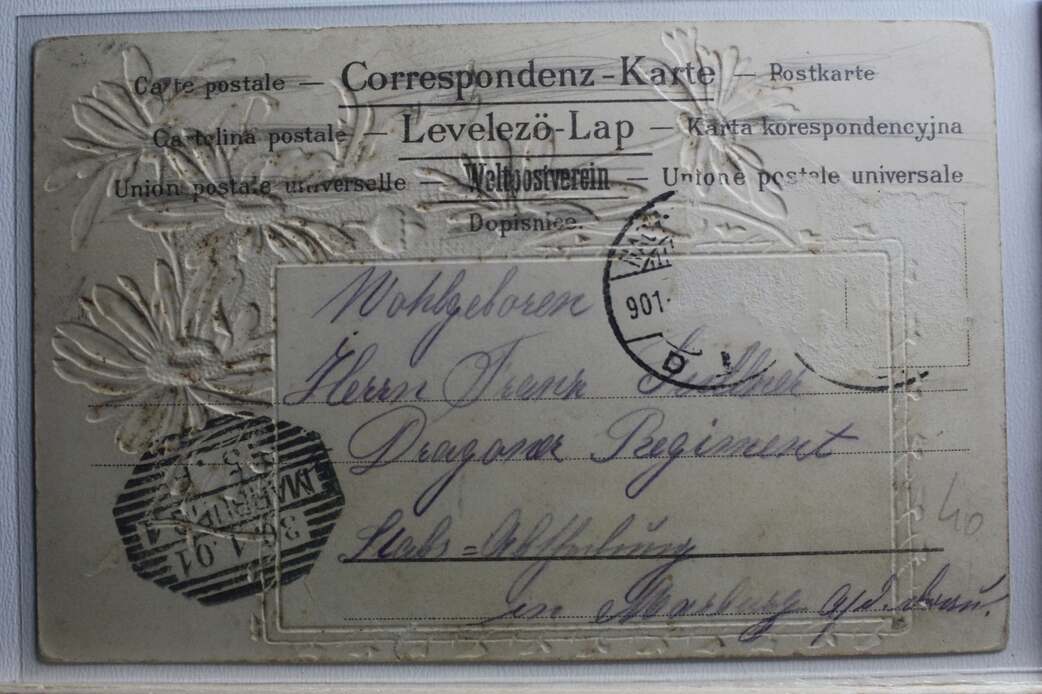 Carte postale — Correspondenz-Karte — Postkarte
Cartolina postale — Levelező-Lap — Karta korespondencyjna
Union postale universelle — Weltpostverein — Unione postale universale
Dopisnice.
901
Wohlgeboren
Herrn Franz
Dragoner Regiment
Stabs=Abtheilung
in Marburg a/d. Drau.
MARBURG
30.1.01
40